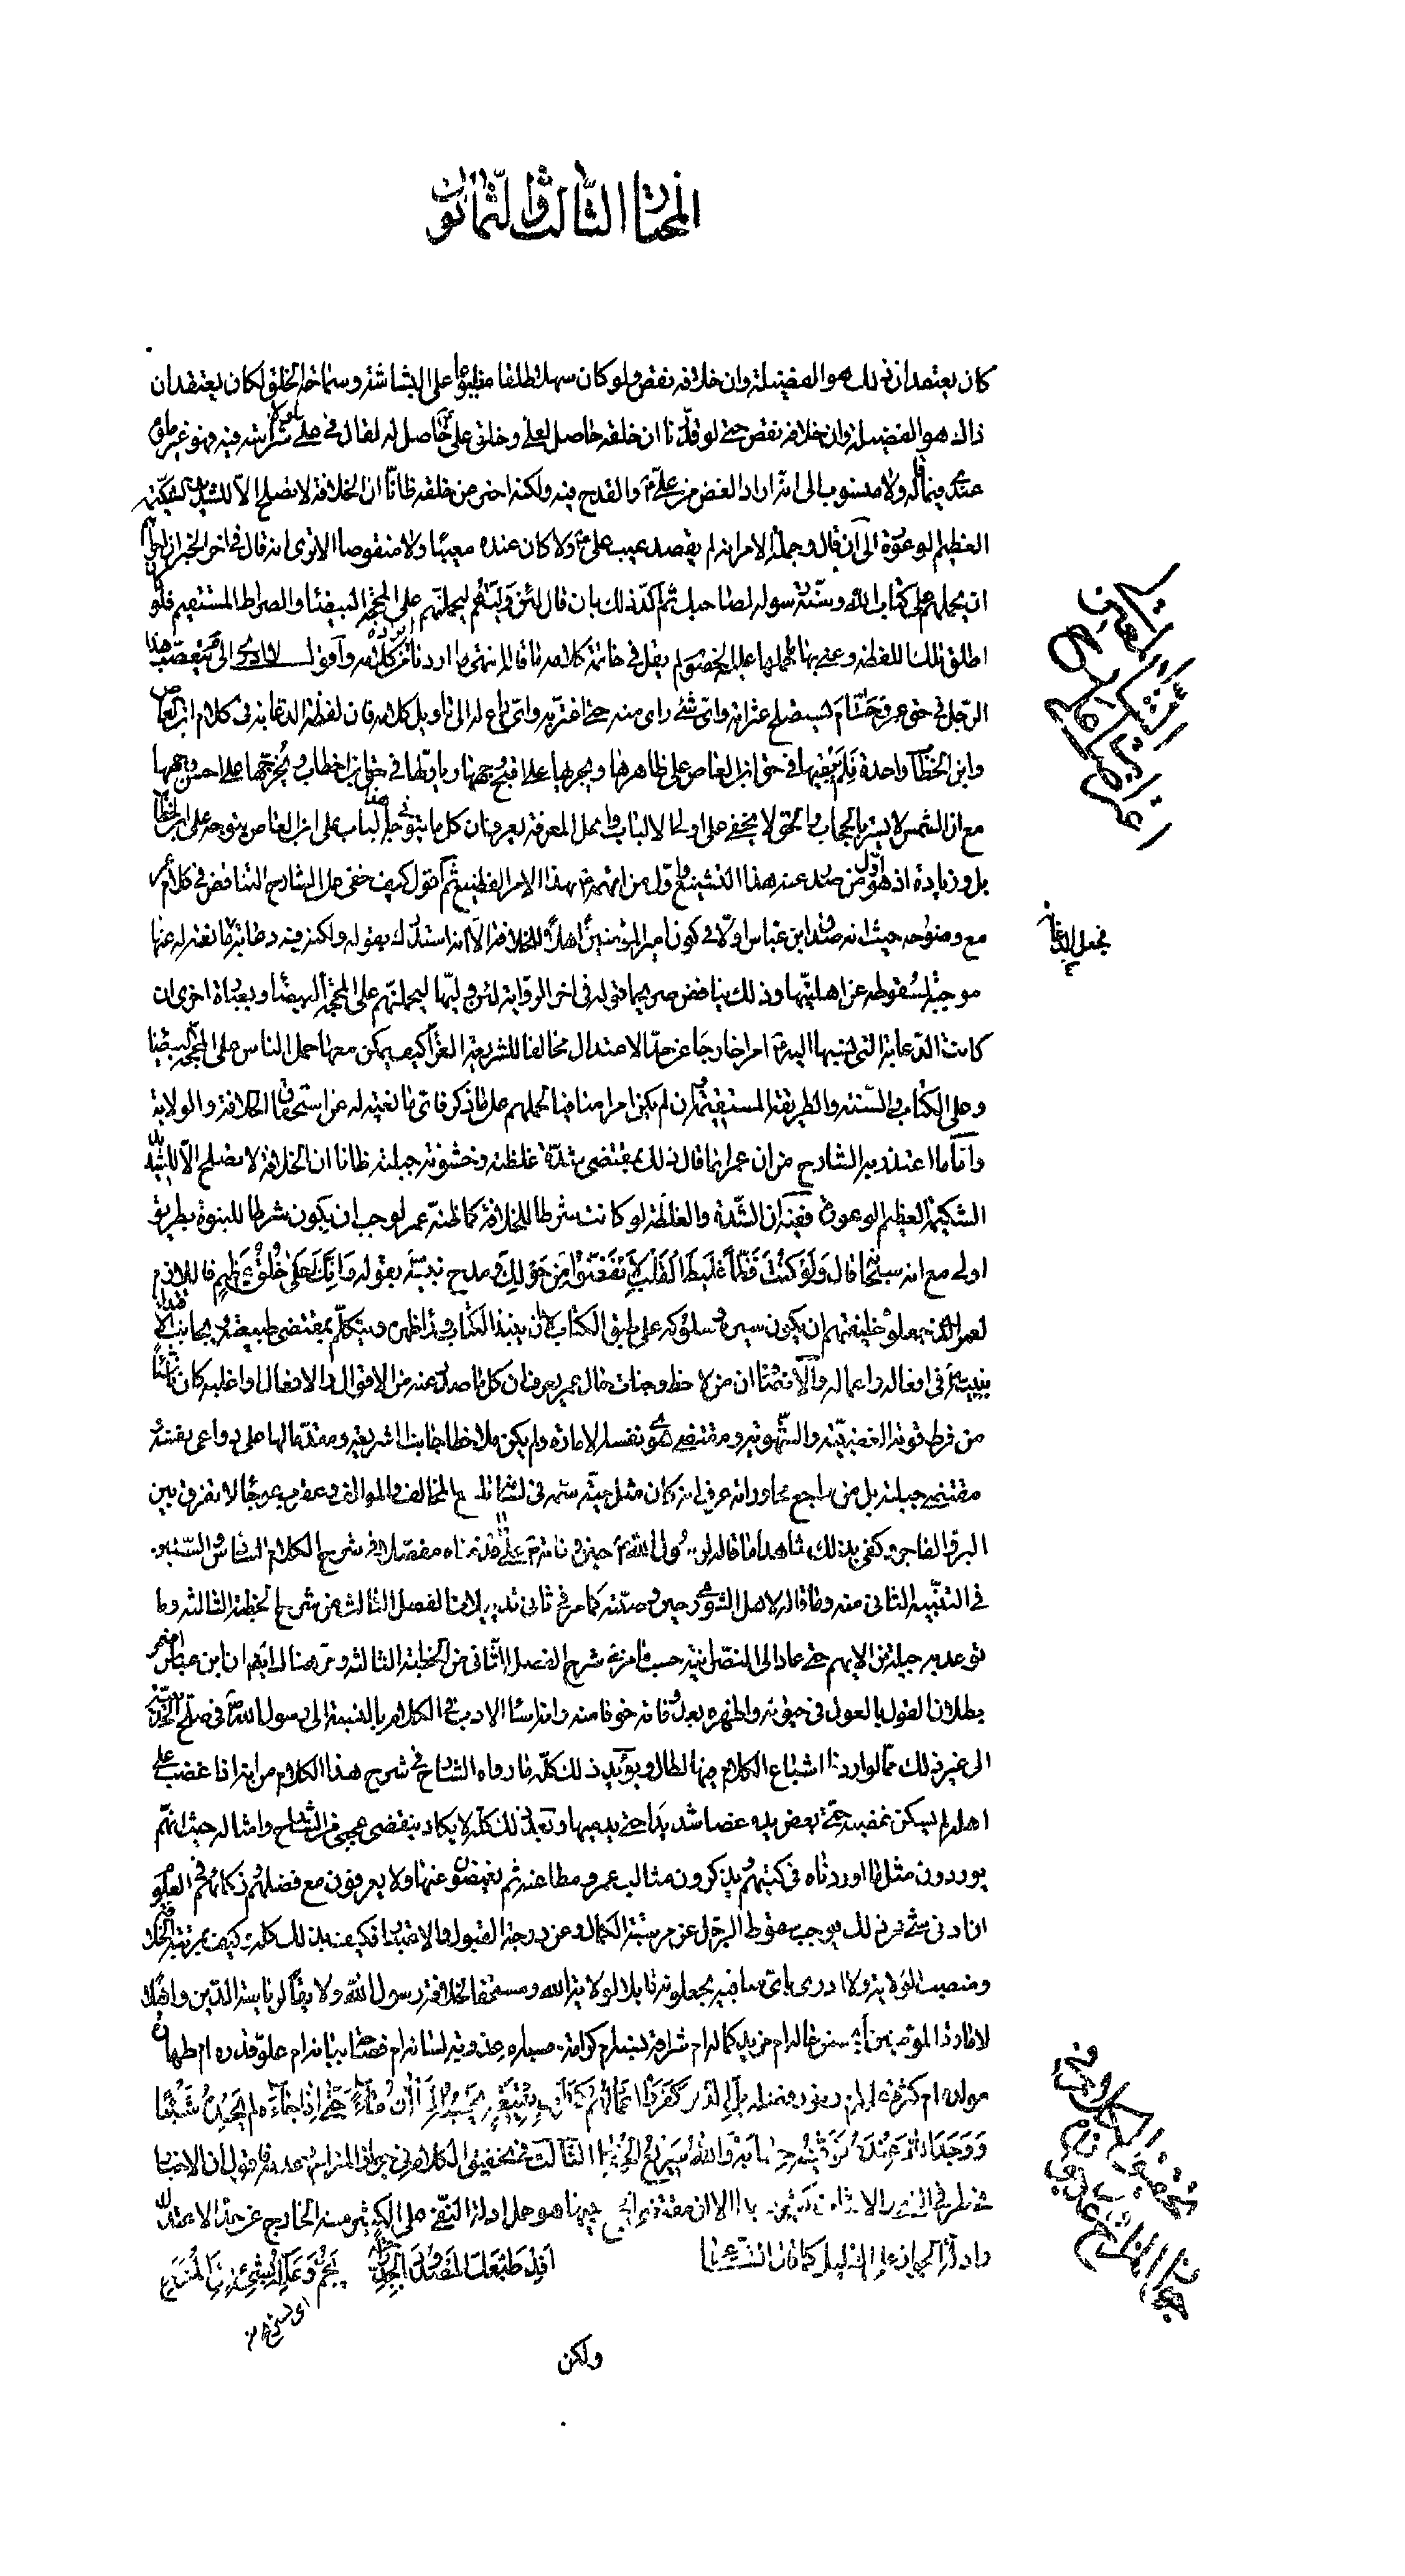 المختار الثالث والثمانون
كان يعتقد ان ذلك هو الفضيلة وان خلافه نقص ولو كان سهلا طلقا مطبوعا على البشاشة وسماحة الخلق لكان يعتقد ان
ذلك هو الفضيلة وان خلافه نقص حتى لو قدرنا ان خلقه حاصل لعلي وخلق علي حاصل له لقال في علي لولا شراسة فيه فهو غير ملوم
عندي فيما قاله ولا منسوب الى انه اراد الغض من علي والقدح فيه ولكنه اخبر عن خلقه ظانا ان الخلافة لا تصلح الا للشديد الشكيمة
العظيم الوعورة الى ان قال وجملة الامر انه لم يقصد عيب علي ولا كان عنده معيبا ولا منقوصا الا ترى انه قال في اخر الخبر ان احراهم
ان يحملهم على كتاب الله وسنة رسوله لصاحبك ثم اكد ذلك بان قال لئن وليهم ليحملنهم على المحجة البيضاء والصراط المستقيم فلو
اطلق تلك اللفظة وعنى بها ما حملها عليه الخصوم لم يقل في خاتمة كلامه ما قاله انتهى ما اردنا ايراده من كلامه واقول لا ادري الى م يتعصب هذا
الرجل في حق عمر وحتام يستصلح عثراته واي شيء راى منه حتى اغتر به واي داع له الى تاويل كلامه فان لفظة الدعابة في كلام ابن العاص
وابن الخطاب واحدة فلم يبقيها في حق ابن العاص على ظاهرها ويجريها على اقبح وجهها وياولها في حق ابن الخطاب ويخرجها على احسن وجهها
مع ان الشمس لا يستر بالحجاب والحق لا يخفى على اولى الالباب واهل المعرفة يعرفون ان كل ما يتوجه في هذا الباب على ابن العاص يتوجه على ابن الخطاب
بل وزيادة اذ هو اول من صدر عنه هذا التشنيع واول من اتهمه بهذا الامر الفظيع ثم اقول كيف خفى على الشارح التناقض في كلام عمر
مع وضوحه حيث انه صدق ابن عباس اولا في كون امير المؤمنين اهلا للخلافة الا انه استدرك بقوله ولكنه فيه دعابة مانعة له عنها
موجبة لسقوطه عن اهليتها وذلك يناقض صريحا قوله في اخر الرواية لئن وليها ليحملنهم على المحجة البيضاء وبعبارة اخرى ان
كانت الدعابة التي نسبها اليه امرا خارجا عن حد الاعتدال مخالفا للشريعة الغراء كيف يمكن معها حمل الناس على المحجة البيضاء
وعلى الكتاب والسنة والطريقة المستقيمة وان لم يكن امرا منافيا لحملهم على ما ذكر فاي مانعية له عن استحقاق الخلافة والولاية
واما ما اعتذر به الشارح من ان عمر انما قال ذلك بمقتضى شدة غلظته وخشونة جبلته ظانا ان الخلافة لا تصلح الا للشديد
الشكيمة العظيم الوعورة ففيه ان الشدة والغلظة لو كانت شرطا للخلافة كما ظنه عمر لوجب ان يكون شرطا للنبوة بطريق
اولى مع انه سبحانه قال ولو كنت فظا غليظ القلب لانفضوا من حولك ومدح نبيه بقوله وانك لعلى خلق عظيم فاللازم
لعمر الذي جعلوه خليفتهم ان يكون سيره وسلوكه على طبق الكتاب لا ان ينبذ الكتاب وراء ظهره ويتكلم بمقتضى طبيعته ويجانب الاقتداء
بنبيه في افعاله واعماله والانصاف ان من لاحظ وجنات حال عمر يعرف ان كل ما صدر عنه من الاقوال والافعال او اغلبه كان ناشئا
من فرط قوته الغضبية والشهوية ومقتضى هوى نفسه الامارة ولم يكن ملاحظا جانب الشريعة ومقدما لها على دواعي نفسه
مقتضى جبلته بل من راجع محاوراته عرف انه كان مثل حية سمه في لسانه مع المخالف والموالف وعقرب عوجا لا تفرق بين
البر والفاجر وكفى بذلك شاهدا ما قاله لرسول الله حين وفاته على ما قدمناه مفصلا في شرح الكلام السادس والستين
في التنبيه الثاني منه وما قاله لاهل الشورى حين وصيته كما مر في ثاني تذييلات الفصل الثالث من شرح الخطبة الثالثة وما
توعد به جبلة بن الايهم حتى عاد الى النصرانية حسب ما مر في شرح الفصل الثاني من الخطبة الثالثة ومر هنالك ايضا ان ابن عباس اضمر
بطلان القول بالعول في حيوته واظهره بعد وفاته خوفا منه وانه اساء الادب في الكلام بالنسبة الى رسول الله في صلح الحديبية
الى غير ذلك مما لو اردنا اشباع الكلام فيها لطال ويؤيد ذلك كله ما رواه الشارح في شرح هذا الكلام من انه اذا غضب على
اهله لم يسكن غضبه حتى يعض يده عضا شديدا حتى يدميها وبعد ذلك كله لا يكاد ينقضي عجبي من الشارح وامثاله حيث انهم
يوردون مثل ما اوردناه في كتبهم ويذكرون مثالب عمر ومطاعنه ثم يغمضون عنها ولا يعرفون مع فضلهم وذكائهم في العلوم
ان ادنى شيء من ذلك يوجب سقوط الرجل عن مرتبة الكمال وعن درجة القبول والاعتبار فكيف بذلك كله وكيف بمرتبة الخلافة
ومنصب الولاية ولا ادري باي مناقبه يجعلونه قابلا لولاية الله ومستحقا لخلافة رسول الله ولايقا لرياسة الدين واهلا
لامارة المؤمنين أبحسن حاله ام مزيد كماله ام شرافة نسبه ام كرامة حسبه ام عذوبة لسانه ام فصاحة بيانه ام علو قدره ام طهارة
مولده ام كثرة علمه ام وفور فضله بل الذين كفروا اعمالهم كسراب بقيعة يحسبه الظمان ماء حتى اذا جاءه لم يجده شيئا
ووجد الله عنده فوفيه حسابه والله سريع الحساب الثالث في تحقيق الكلام في جواز المزاح وعدمه فاقول ان الاخبار
في طرفي النفي والاثبات كثيرة جدا الا ان مقتضى الجمع بينها هو حمل ادلة النفي على الكثير منه الخارج عن حد الاعتدال
وادلة الجواز على القليل كما قال الشاعر افد طبعك المكدود بالجد راحة يجم وعلله بشيء من المزح
اي يستريح منه
ولكن
اعتراض على الشارح المعتزلي
تحقيق الكلام في جواز المزاح وعدمه